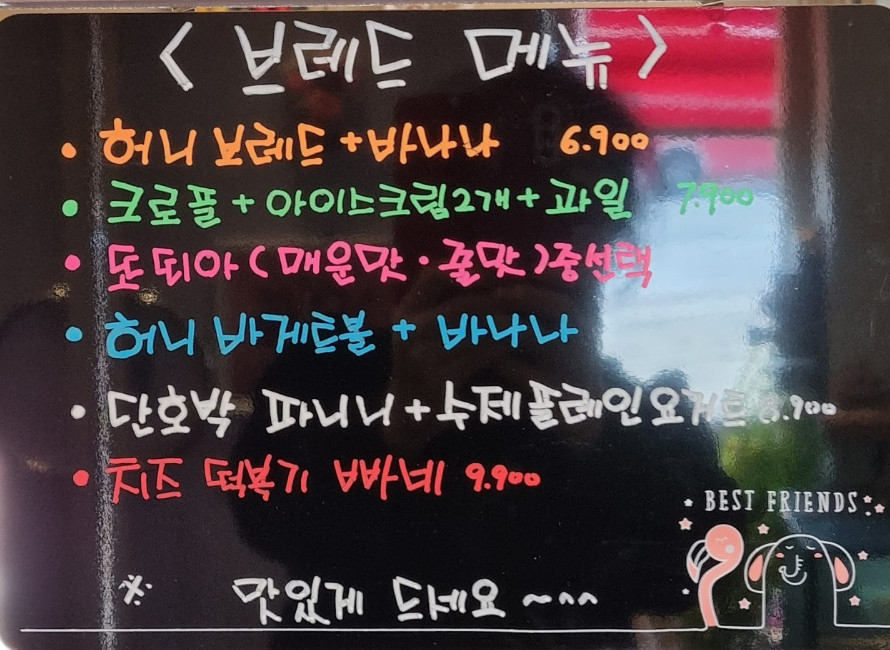 < 브레드 메뉴 >
• 허니 브레드 + 바나나 6.900
• 크로플 + 아이스크림2개 + 과일 7.900
• 또띠아 ( 매운맛 · 콘맛 ) 중선택
• 허니 바게트볼 + 바나나
• 단호박 파니니 + 수제플레인요거트 8.900
• 치즈 떡볶기 빠네 9.900
※ 맛있게 드세요 ~^^
BEST FRIENDS